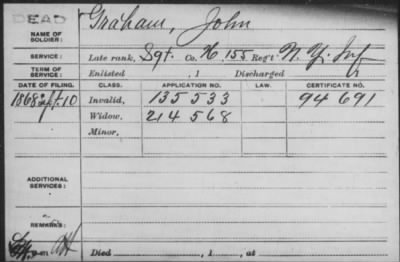 DEAD
Graham, John
NAME OF SOLDIER:
SERVICE: Late rank, Sgt. Co. H 155 Reg't N. Y. Inf
TERM OF SERVICE: Enlisted , 1 Discharged , 1
DATE OF FILING. CLASS. APPLICATION NO. LAW. CERTIFICATE NO.
1868 Sept. 10 Invalid, 135 533 94 691
Widow, 214 568
Minor,
ADDITIONAL SERVICES:
REMARKS:
Died , 1 , at